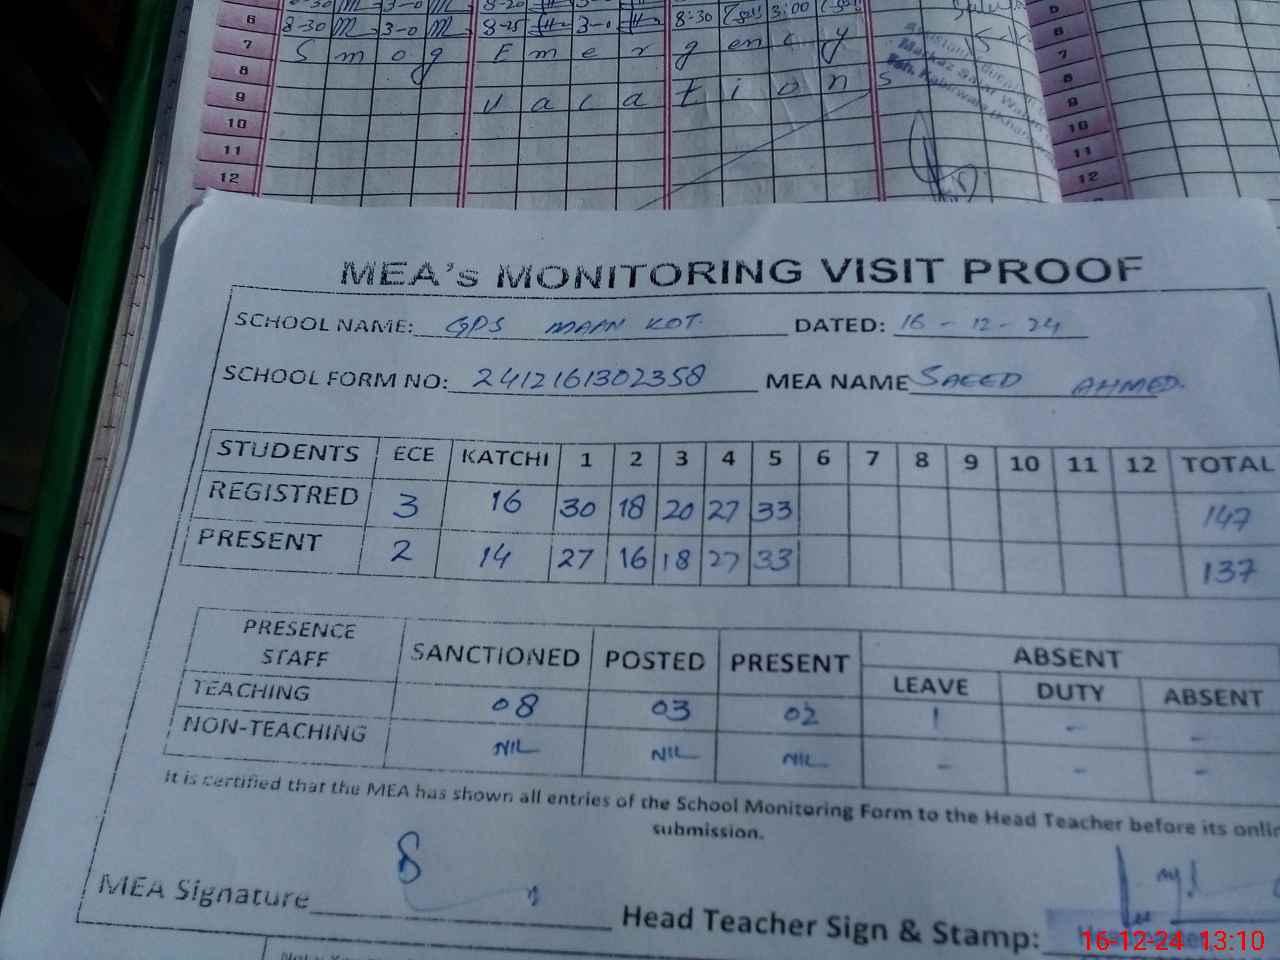 6 8-30 3-0 8-25 3-0 8-30 3:00 6
7 Smog Emergency 7
8 vacations 8
9 9
10 10
11 11
12 12
MEA's MONITORING VISIT PROOF
SCHOOL NAME: GPS MAAN KOT. DATED: 16-12-24
SCHOOL FORM NO: 2412161302358 MEA NAME SAEED AHMED.
STUDENTS ECE KATCHI 1 2 3 4 5 6 7 8 9 10 11 12 TOTAL
REGISTRED 3 16 30 18 20 27 33 147
PRESENT 2 14 27 16 18 27 33 137
PRESENCE STAFF SANCTIONED POSTED PRESENT ABSENT
LEAVE DUTY ABSENT
TEACHING 08 03 02 1 - -
NON-TEACHING NIL NIL NIL - - -
It is certified that the MEA has shown all entries of the School Monitoring Form to the Head Teacher before its onlin
submission.
MEA Signature
Head Teacher Sign & Stamp:
16-12-24 13:10